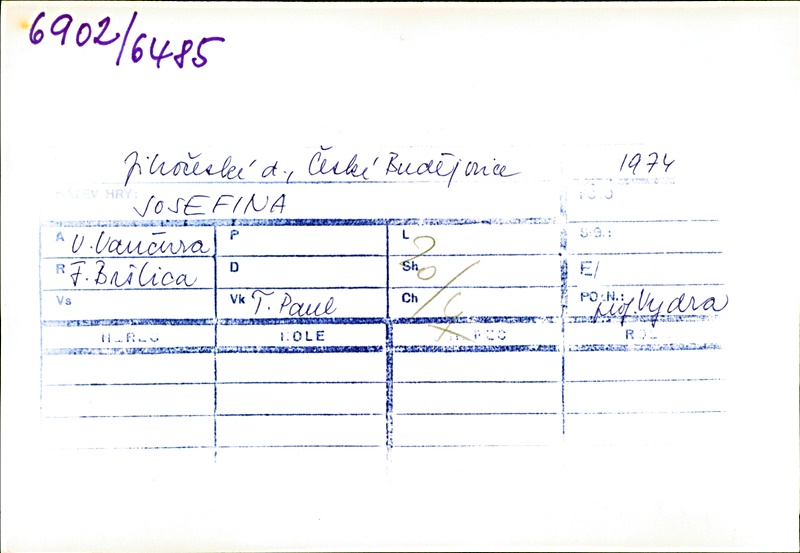 6902/6485
Jihočeské d., České Budějovice 1974
NÁZEV HRY:
JOSEFINA
A V. Vančura P L S.G.:
R F. Bršlica D Sh E/
Vs Vk T. Paul Ch PO.N.: Vydra
20/X
HEREC ROLE HEREC ROLE